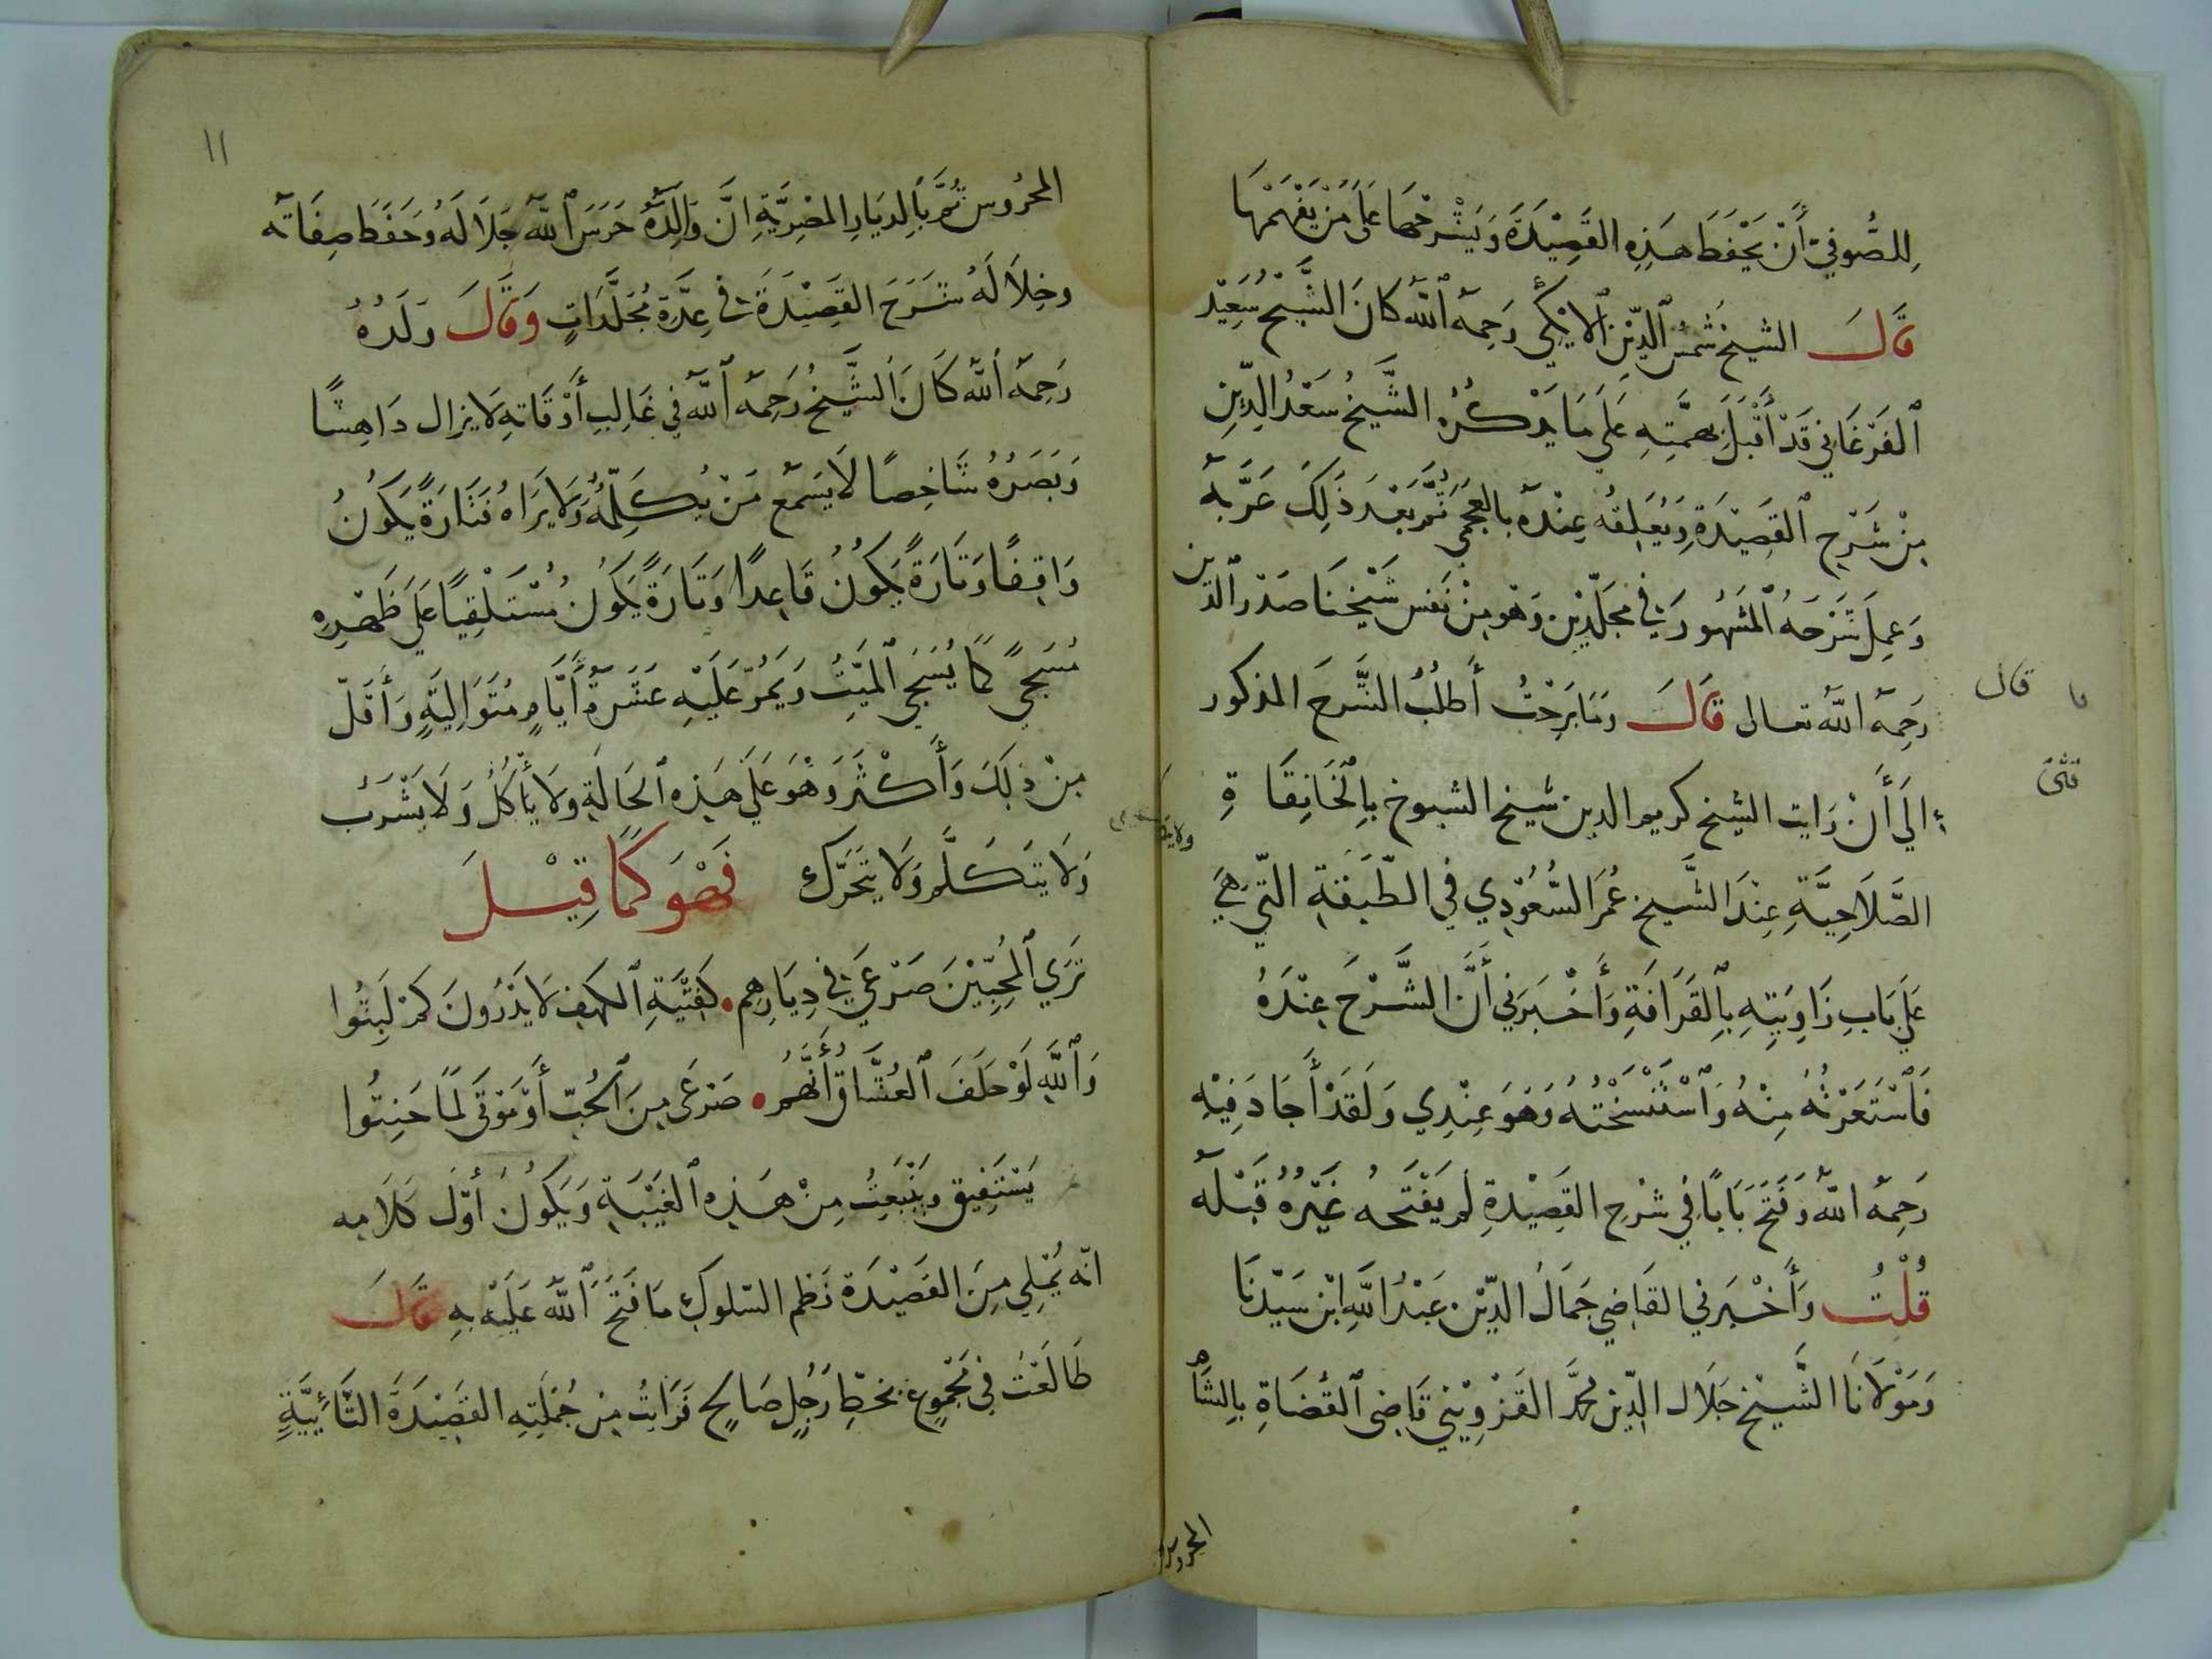 لِلصُّوفِيّ أَنْ يَحْفَظَ هَذِهِ القَصِيْدَةَ وَيَشْرَحْهَا عَلَى مَنْ يَفْهَمْهَا
قَالَ الشيخ شَمْسُ الدِّيْنِ الايْكِي رَحِمَهُ اللهُ كَانَ الشَّيْخُ سَعِيْد
الفَرْغَانِي قَدْ أَقْبَلَ بِهِمَّتِهِ عَلَى مَا يَذْكُرُهُ الشَّيْخُ سَعْدُ الدِّيْنِ
مِنْ شَرْحِ القَصِيْدَةِ وَيُعَلِّقُهُ عِنْدَهُ بِالعَجَمِي ثُمَّ بَعْدَ ذَلِكَ عَرَّبَهُ
وَعَمِلَ شَرْحَهُ المَشْهُورَ فِي مُجَلَّدَيْنِ وَهُو مِنْ نَفَسِ شَيْخِنَا صَدْرِ الدّين
رَحِمَهُ اللهُ تعالى قَالَ وَمَا بَرِحْتُ أَطْلُبُ الشَّرْحَ المذكور
إلَى أَنْ رَايت الشيخ كريم الدين شيخ الشيوخ بِالخَانِقَاةِ
الصَّلَاحِيَّةِ عِنْدَ الشَّيخ عُمَرَ السُّعُوْدِي فِي الطَّبَقَةِ التّي هِيَ
عَلَى بَابِ زَاوِيَتِهِ بِالقَرَافَةِ وَأَخْبَرَنِي أَنَّ الشَّرْحَ عِنْدَهُ
فَاسْتَعَرْتُهُ مِنْهُ وَاسْتَنْسَخْتُه وَهُوَ عِنْدِي وَلَقَدْ أَجَادَ فِيْهِ
رَحِمَهُ اللهُ وَفَتَحَ بَابًا فِي شَرْحِ القَصِيْدةِ لم يَفْتَحهُ غَيْرُهُ قَبْلَهُ
قُلْتُ وَأَخْبَرَني القَاضِي جَمَالُ الدّيْنِ عَبْدُ اللهِ ابْن سَيّدنَا
وَمَوْلَانَا الشَّيْخ جَلَال الدِّين محمَّد القَزْوِيْنِي قَاضِي القُضَاةِ بِالشَامِ
قال
المحروس
المحرُوس ثُمَّ بَالدِيَارِ المِصْرِيَّةِ انَّ وَالِدَهُ حَرَسَ اللهُ جَلَالَهُ وَحَفَظَ صِفَاتَه
وخِلَالَهُ شَرَحَ القَصِيْدَةَ فِي عِدَّةِ مُجَلَّدَاتٍ وَقَالَ وَلَدُهُ
رَحِمَهُ اللهُ كَانَ الشَّيْخُ رَحِمَهُ اللهُ فِي غَالِبِ أَوْقَاتِهِ لَا يزال دَاهِشًا
وَبَصَرُهُ شَاخِصًا لَا يَسْمَعُ مَنْ يُكَلِّمُهُ وَلَا يَرَاهُ فَتَارَةً يَكُونُ
وَاقِفًا وَتَارَةً يَكُوْنُ قَاعِدًا وَتَارَةً يَكُونُ مُسْتَلْقِيًا عَلَى ظَهْرِهِ
مُسَجًّى كَمَا يُسَجَّى المَيّتُ وَيَمُرّ عَلَيْهِ عَشَرَةُ أَيَّامٍ مُتَوَالِيَةٍ وَأَقَلّ
مِنْ ذَلِكَ وَأَكْثَرَ وَهُوَ عَلَى هَذِهِ الحَالَةِ وَلَا يَأْكُلُ وَلَا يَشْرَبُ
وَلَا يَتَكَلَّمُ وَلَا يَتَحَرَّكُ فَهُوَ كَمَا قِيْلَ
تَرَى المُحِبِّيْنَ صَرْعَى فِي دِيَارِهِم • كَفِتْيَةِ الكَهفِ لَا يَدْرُونَ كَمْ لَبِثُوا
وَاللهِ لَوْ حَلَفَ العُشَّاقُ أَنَّهُمُ • صَرْعَى مِنَ الحُبّ أَوْ مَوْتَى لَمَا حَنِثُوا
يَسْتَفِيق وَيَنْبَعِثُ مِنْ هَذِهِ الغَيْبَةِ وَيَكُوْنُ أَوّلَ كَلَامِه
انّه يُمْلِي مِنَ القَصِيْدَة نَظْم السّلوك مَا فَتَحَ اللهُ عَلَيْهِ بِهِ قَالَ
طَالَعْتُ فِي مَجْمُوع بخطِّ رَجُلٍ صَالِحٍ فَرَايتُ مِن جُمْلَتِهِ القَصِيْدَةَ التَّائِيَّةَ
١١